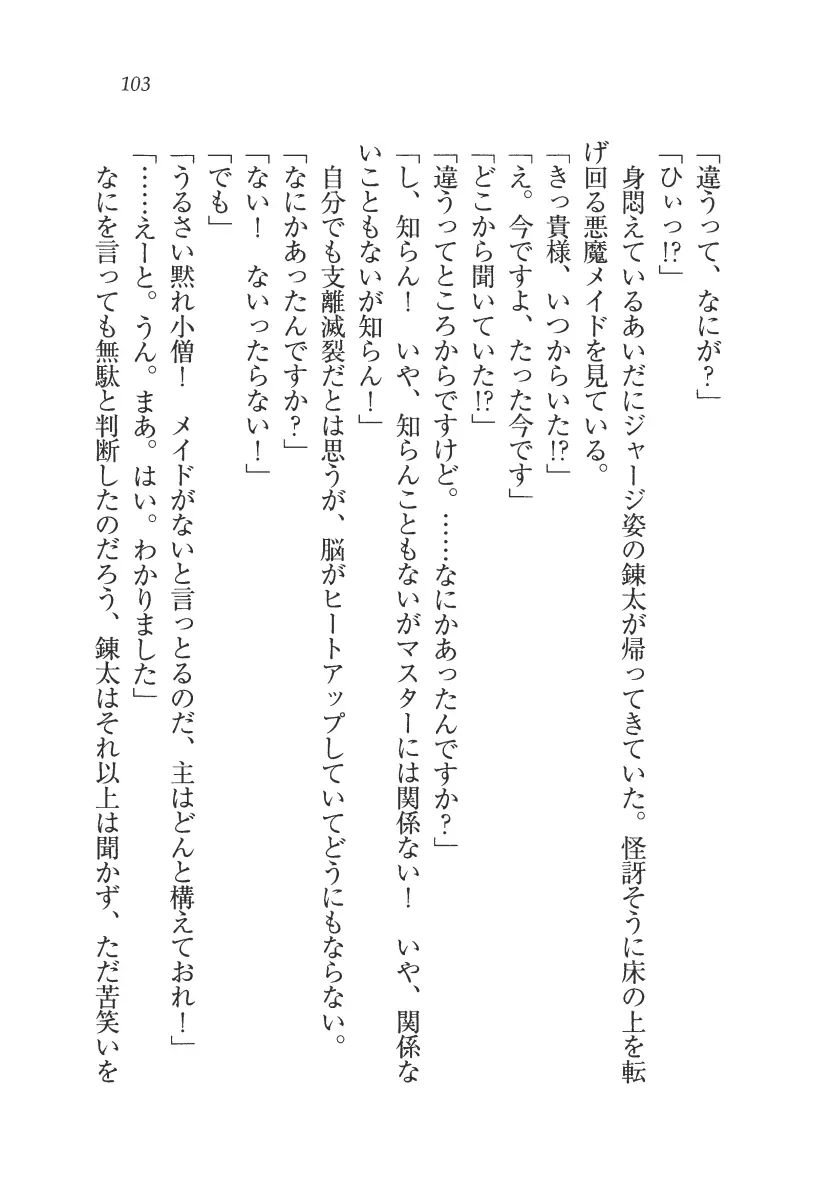 103
「違うって、なにが？」
「ひぃっ!?」
　身悶えているあいだにジャージ姿の錬太が帰ってきていた。怪訝そうに床の上を転
げ回る悪魔メイドを見ている。
「きっ貴様、いつからいた!?」
「え。今ですよ、たった今です」
「どこから聞いていた!?」
「違うってところからですけど。……なにかあったんですか？」
「し、知らん！　いや、知らんこともないがマスターには関係ない！　いや、関係な
いこともないが知らん！」
　自分でも支離滅裂だとは思うが、脳がヒートアップしていてどうにもならない。
「なにかあったんですか？」
「ない！　ないったらない！」
「でも」
「うるさい黙れ小僧！　メイドがないと言っとるのだ、主はどんと構えておれ！」
「……えーと。うん。まあ。はい。わかりました」
　なにを言っても無駄と判断したのだろう、錬太はそれ以上は聞かず、ただ苦笑いを